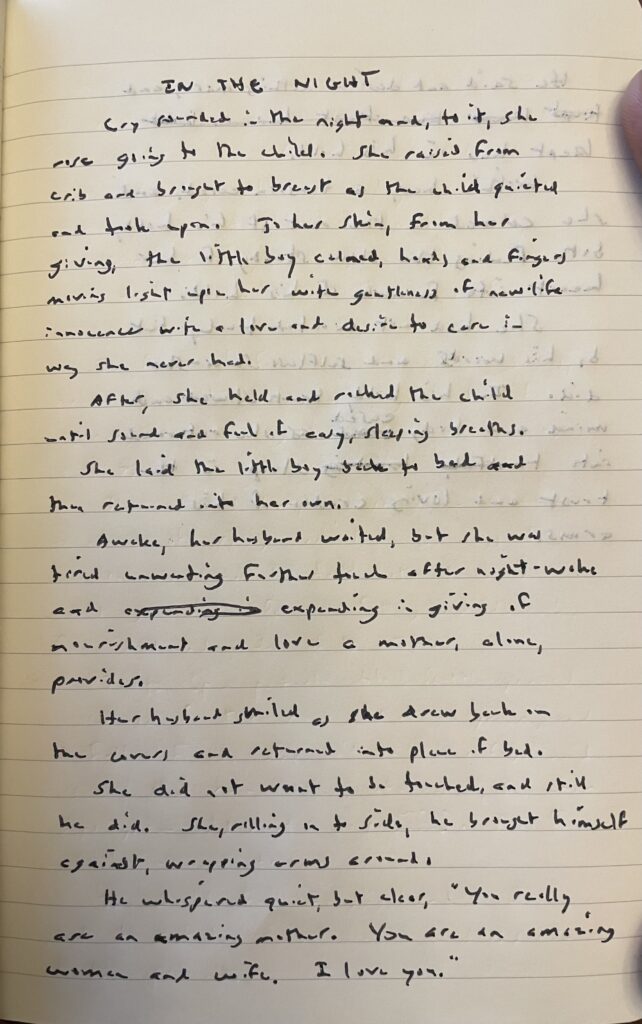 IN THE NIGHT
Cry sounded in the night and, to it, she
rose going to the child. She raised from
crib and brought to breast as the child quieted
and took upon. To her skin, from her
giving, the little boy calmed, hands and fingers
moving light upon her with gentleness of new life
innocence with a love and desire to care in
way she never had.
After, she held and rocked the child
until sound and feel of easy, sleeping breaths.
She laid the little boy back to bed and
then returned into her own.
Awake, her husband waited, but she was
tired unwanting further touch after night-woke
and expending in giving of
nourishment and love a mother, alone,
provides.
Her husband smiled as she drew back on
the covers and returned into place of bed.
She did not want to be touched, and still
he did. She, rolling on to side, he brought himself
against, wrapping arms around.
He whispered quiet, but clear, "You really
are an amazing mother. You are an amazing
woman and wife. I love you."